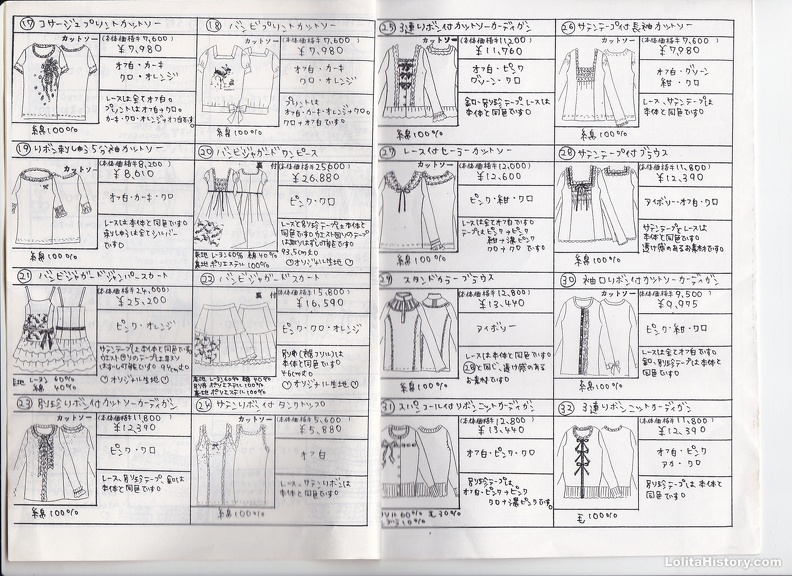 ⑰ コサージュプリントカットソー
カットソー
(本体価格¥7,600)
¥7,980
オフ白・カーキ
クロ・オレンジ
レースは全てオフ白。
プリントはオフ白→クロ。
カーキ・クロ・オレンジ→オフ白です
綿100%
⑱ バンビプリントカットソー
カットソー
(本体価格¥7,600)
¥7,980
オフ白・カーキ
クロ・オレンジ
プリントは
オフ白・カーキ・オレンジ→クロ。
クロ→オフ白です。
綿100%
⑲ リボン刺しゅう5分袖カットソー
カットソー
(本体価格¥8,200)
¥8,610
オフ白・カーキ・クロ
レースは本体と同色です。
刺しゅうは全てシルバー
です。
綿100%
⑳ バンビジャガードワンピース
(本体価格¥25600)
¥26,880
ピンク・クロ
93.5cm丈
♡オリジナル生地♡
表地 レーヨン60% 綿40%
裏地 ポリエステル100%
㉑ バンビジャガードジャンパースカート
(本体価格¥24,000)
¥25,200
ピンク・オレンジ
サテンテープは本体と同色です。
♡オリジナル生地♡
レーヨン60%
綿40%
㉒ バンビジャガードスカート
裏付
(本体価格¥15,800)
¥16,590
ピンク・クロ・オレンジ
別布(裾フリル)は
本体と同色です。
46cm丈
♡オリジナル生地♡
表地 レーヨン60% 綿40%
別布 ポリエステル100%
裏地 ポリエステル100%
㉓ 別珍リボン付カットソーカーディガン
カットソー
(本体価格¥11800)
¥12,390
ピンク・クロ
レース、別珍テープ、釦は
本体と同色です。
綿100%
㉔ サテンリボン付タンクトップ
カットソー
(本体価格¥5,600)
¥5,880
オフ白
レース、サテンリボンは
本体と同色です。
綿100%
㉕ 3連リボン付カットソーカーディガン
カットソー
(本体価格¥11,200)
¥11,760
オフ白・ピンク
グリーン・クロ
釦、別珍テープ、レースは
本体と同色です。
綿100%
㉖ サテンテープ付長袖カットソー
カットソー
(本体価格¥7,600)
¥7,980
オフ白・グリーン
紺・クロ
レース、サテンテープは
本体と同色です。
綿100%
㉗ レース付セーラーカットソー
カットソー
(本体価格¥12,000)
¥12,600
ピンク・紺・クロ
レースは全てオフ白です。
テープはピンク→ピンク
紺→濃ピンク
クロ→クロ
綿100%
㉘ サテンテープ付ブラウス
(本体価格¥11,800)
¥12,390
アイボリー・オフ白・クロ
サテンテープとレースは
本体と同色です。
透け感のあるお素材です
綿100%
㉙ スタンドカラーブラウス
(本体価格¥12,800)
¥13,440
アイボリー
レースは本体と同色です。
㉘と同じ、透け感のある
お素材です
綿100%
㉚ 袖口リボン付カットソーカーディガン
カットソー
(本体価格¥9,500)
¥9,975
ピンク・紺・クロ
レースは全てオフ白です。
釦、別珍テープは本体と
同色です。
綿100%
㉛ スパンコール付リボンニットカーディガン
(本体価格¥12,800)
¥13,440
オフ白・ピンク・クロ
別珍テープは、
オフ白・ピンク→ピンク
クロ→濃ピンクです。
60% 毛30%
10%
㉜ 3連リボンニットカーディガン
(本体価格¥11,800)
¥12,390
オフ白・ピンク
アイ・クロ
別珍テープは本体と
同色です。
毛100%
LolitaHistory.com